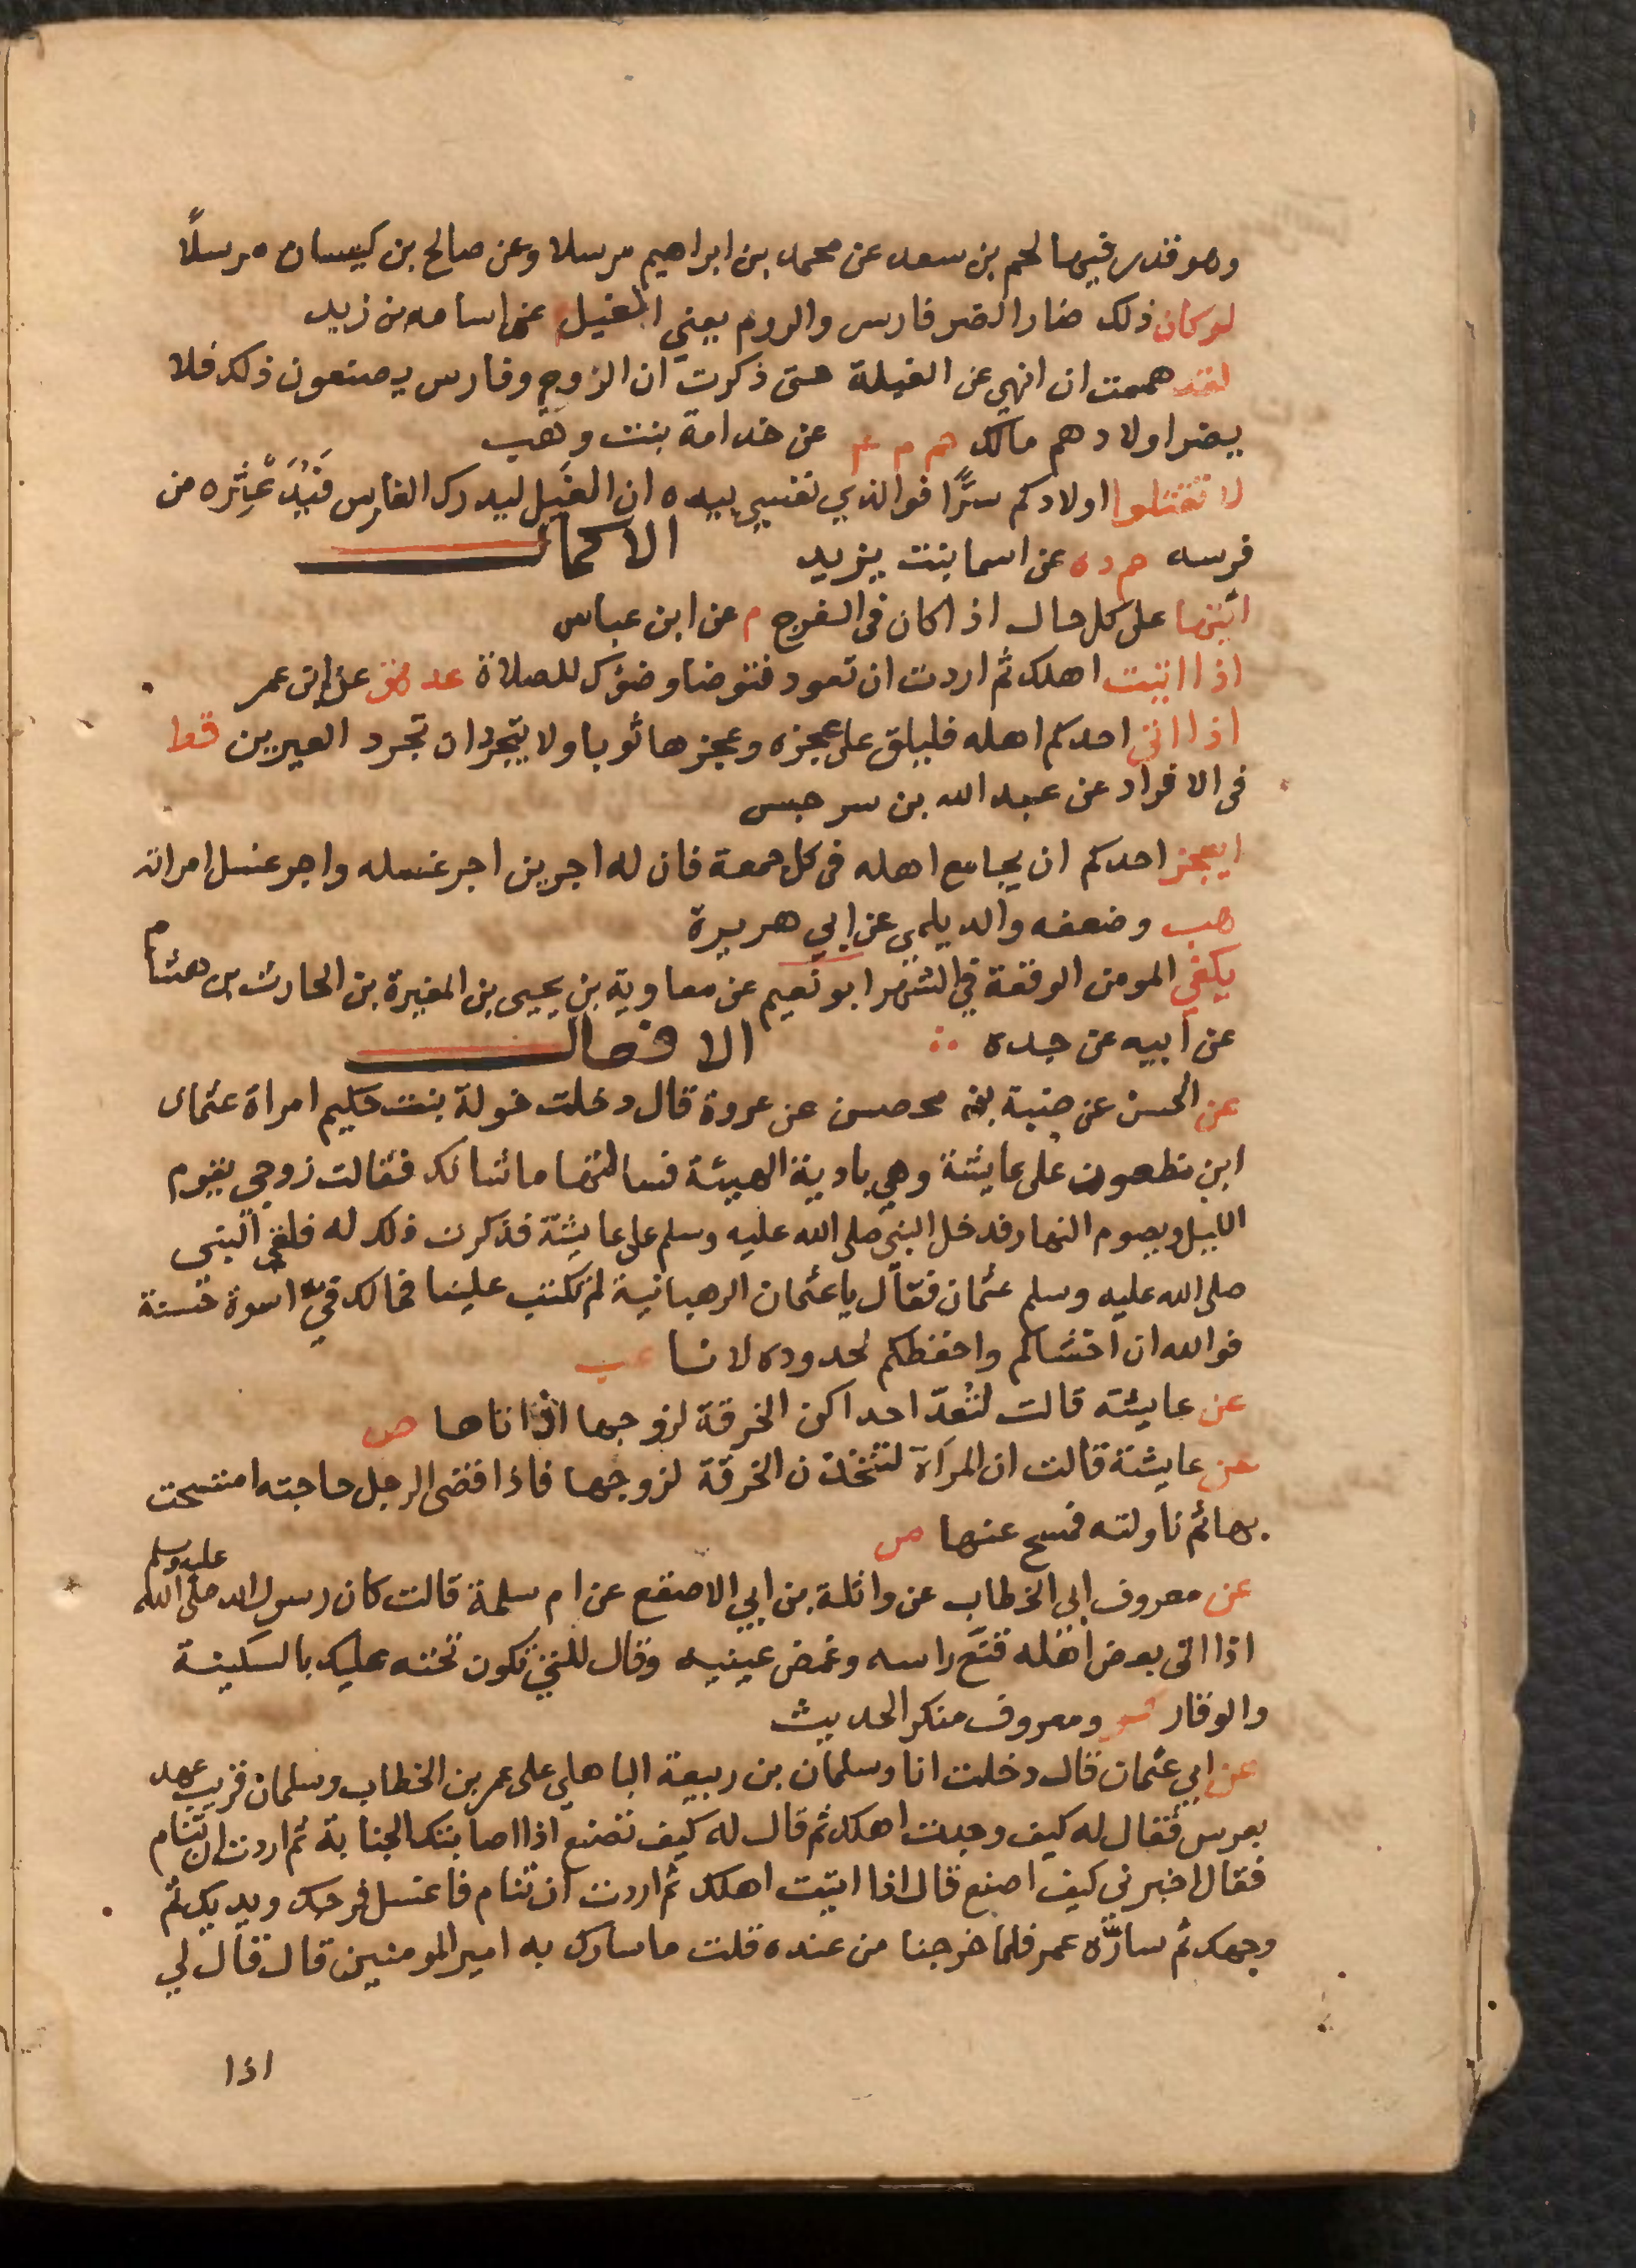 وهو قدر فيها لحم بن سعد عن محمد بن ابراهيم مرسلا وعن صالح بن كيسان مرسلًا
لو كان ذلك ضارا لضر فارس والروم يعني الغيل م عن اسامه بن زيد
لقد هممت ان انهي عن الغيلة حتى ذكرت ان الروم وفارس يصنعون ذلك فلا
يضر اولادهم مالك حم م عن خدامة بنت وهب
لا تقتلوا اولادكم سرًّا فوالذي نفسي بيده ان الغيل ليدرك الفارس فيدعثره من
فرسه حم د ه عن اسما بنت يزيد الاكمال
ائتها على كل حال اذا كان في الفرج م عن ابن عباس
اذا اتيت اهلك ثم اردت ان تعود فتوضا وضوك للصلاة عد هق عن ابن عمر
اذا اتى احدكم اهله فليلق على عجزه وعجزها ثوبا ولا يتجردان تجرد العيرين قط
في الافراد عن عبد الله بن سرجس
ايعجز احدكم ان يجامع اهله في كل جمعة فان له اجرين اجر غسله واجر غسل امراته
هب وضعفه والديلمي عن ابي هريرة
يكفي المومن الوقعة في الشهر ابو نعيم عن معاوية بن يحيى بن المغيرة بن الحارث بن هشام
عن ابيه عن جده الافعال
عن الحسن عن ضبة بن محصن عن عروة قال دخلت خولة بنت حكيم امراة عثمان
ابن مظعون على عايشة وهي بادية الهيئة فسالتها ما شانك فقالت زوجي يقوم
الليل ويصوم النهار فدخل النبي صلى الله عليه وسلم على عايشة فذكرت ذلك له فلقي النبي
صلى الله عليه وسلم عثمان فقال يا عثمان الرهبانية لم تكتب علينا فمالك فيّ اسوة حسنة
فوالله ان اخشاكم واحفظكم لحدوده لانا عب
عن عايشة قالت لتُعدّ احداكن الخرقة لزوجها اذا اتاها ص
عن عايشة قالت ان المراة لتتخذن الخرقة لزوجها فاذا قضى الرجل حاجته امتسحت
بها ثم ناولته فمسح عنها ص
عن معروف ابي الخطاب عن واثلة بن ابي الاصقع عن ام سلمة قالت كان رسول الله صلى الله عليه وسلم
اذا اتى بعض اهله قنّع راسه وغمض عينيه وقال للتي تكون تحته عليك بالسكينة
والوقار ومعروف منكر الحديث
عن ابي عثمان قال دخلت انا وسلمان بن ربيعة الباهلي على عمر بن الخطاب وسلمان قريب عهد
بعرس فقال له كيف وجدت اهلك ثم قال له كيف تصنع اذا اصابتك الجنابة ثم اردت ان تنام
فقال اخبرني كيف اصنع قال اذا اتيت اهلك ثم اردت ان تنام فاغسل فرجك ويديك ثم
وجهك ثم سارّه عمر فلما خرجنا من عنده قلت ما سارك به امير المومنين قال قال لي
اذا